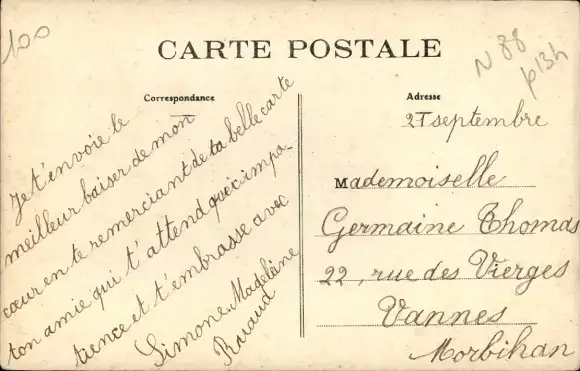 100
N 88
p13h
CARTE POSTALE
Correspondance
Adresse
Je t'envoie le
meilleur baiser de mon
cœur en te remerciant de ta belle carte
ton amie qui t'attend avec impa-
tience et t'embrasse avec
Simone. Madelaine
Ruaud
27 septembre
Mademoiselle
Germaine Thomas
22, rue des Vierges
Vannes
Morbihan